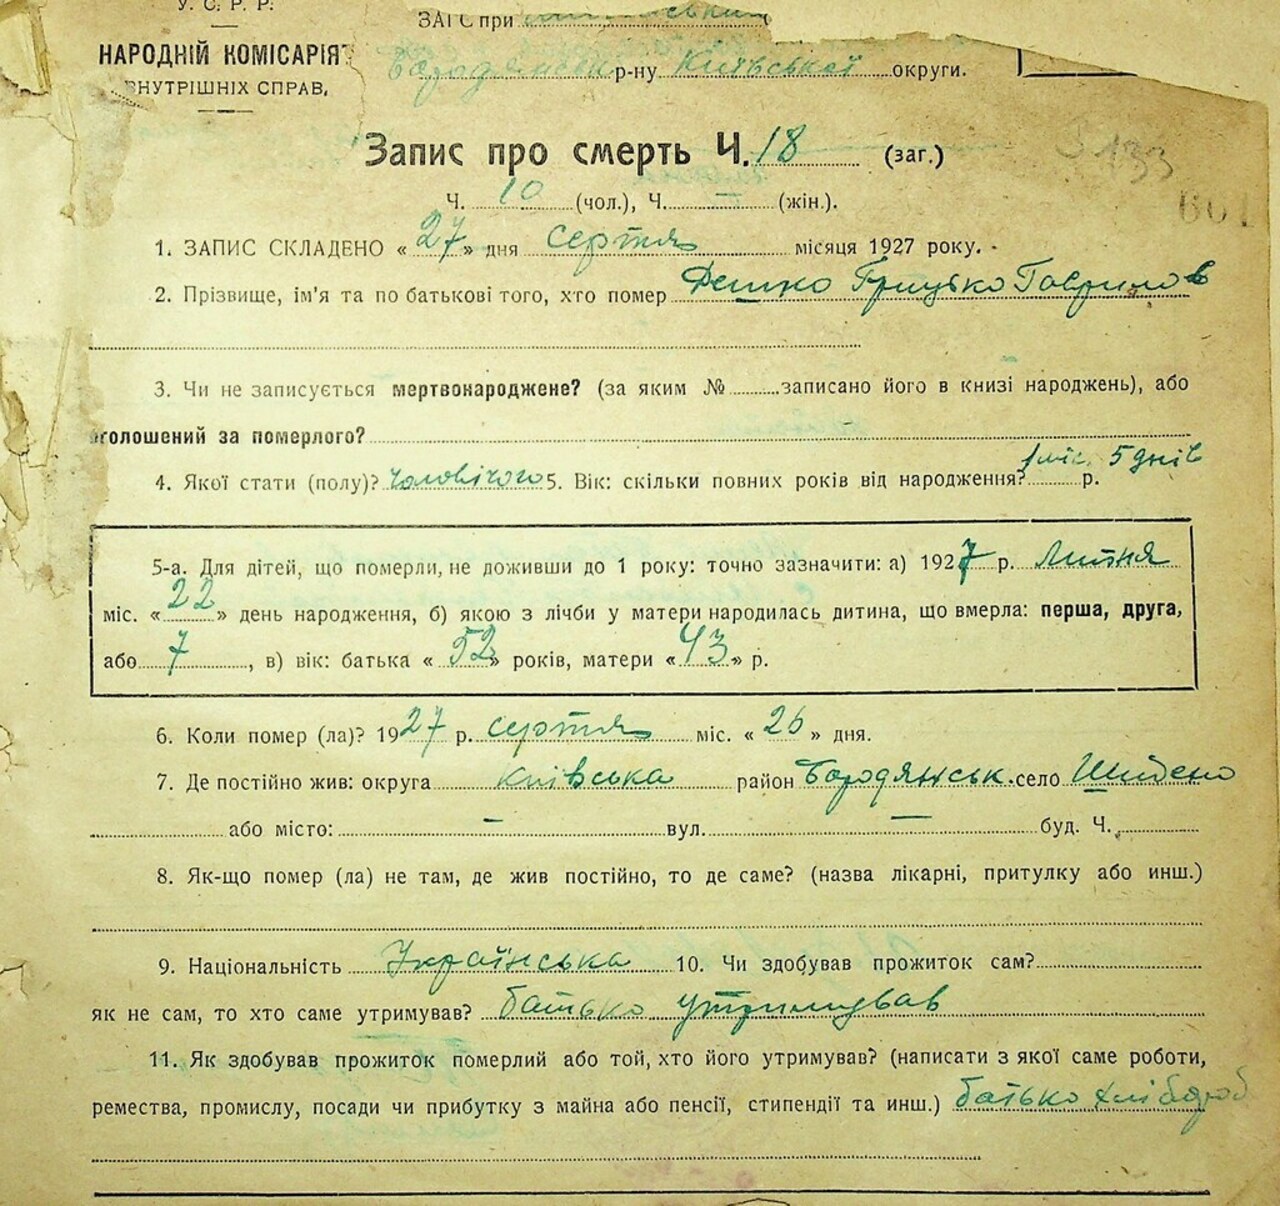 У. С. Р. Р.
ЗАГС при
НАРОДНІЙ КОМІСАРІЯТ
ВНУТРІШНІХ СПРАВ,
Бородянськ. р-ну Київської округи.
Запис про смерть Ч. 18 (заг.)
133
Ч. 10 (чол.), Ч. — (жін.).
601
1. ЗАПИС СКЛАДЕНО « 27 » дня серпня місяця 1927 року.
2. Прізвище, ім'я та по батькові того, хто помер Дешко Грицько Гаврилов
3. Чи не записується мертвонароджене? (за яким № записано його в книзі народжень), або
оголошений за померлого?
4. Якої стати (полу)? чоловічого 5. Вік: скільки повних років від народження? 1 міс. 5 днів р.
5-а. Для дітей, що померли, не доживши до 1 року: точно зазначити: а) 1927 р. Липня
міс. « 22 » день народження, б) якою з лічби у матери народилась дитина, що вмерла: перша, друга,
або 7, в) вік: батька « 52 » років, матери « 43 » р.
6. Коли помер (ла)? 1927 р. серпня міс. « 26 » дня.
7. Де постійно жив: округа Київська район Бородянськ. село
або місто: — вул. — буд. Ч.
8. Як-що помер (ла) не там, де жив постійно, то де саме? (назва лікарні, притулку або инш.)
9. Національність Українська 10. Чи здобував прожиток сам?
як не сам, то хто саме утримував? батько утримував
11. Як здобував прожиток померлий або той, хто його утримував? (написати з якої саме роботи,
ремества, промислу, посади чи прибутку з майна або пенсії, стипендії та инш.) батько хлібороб